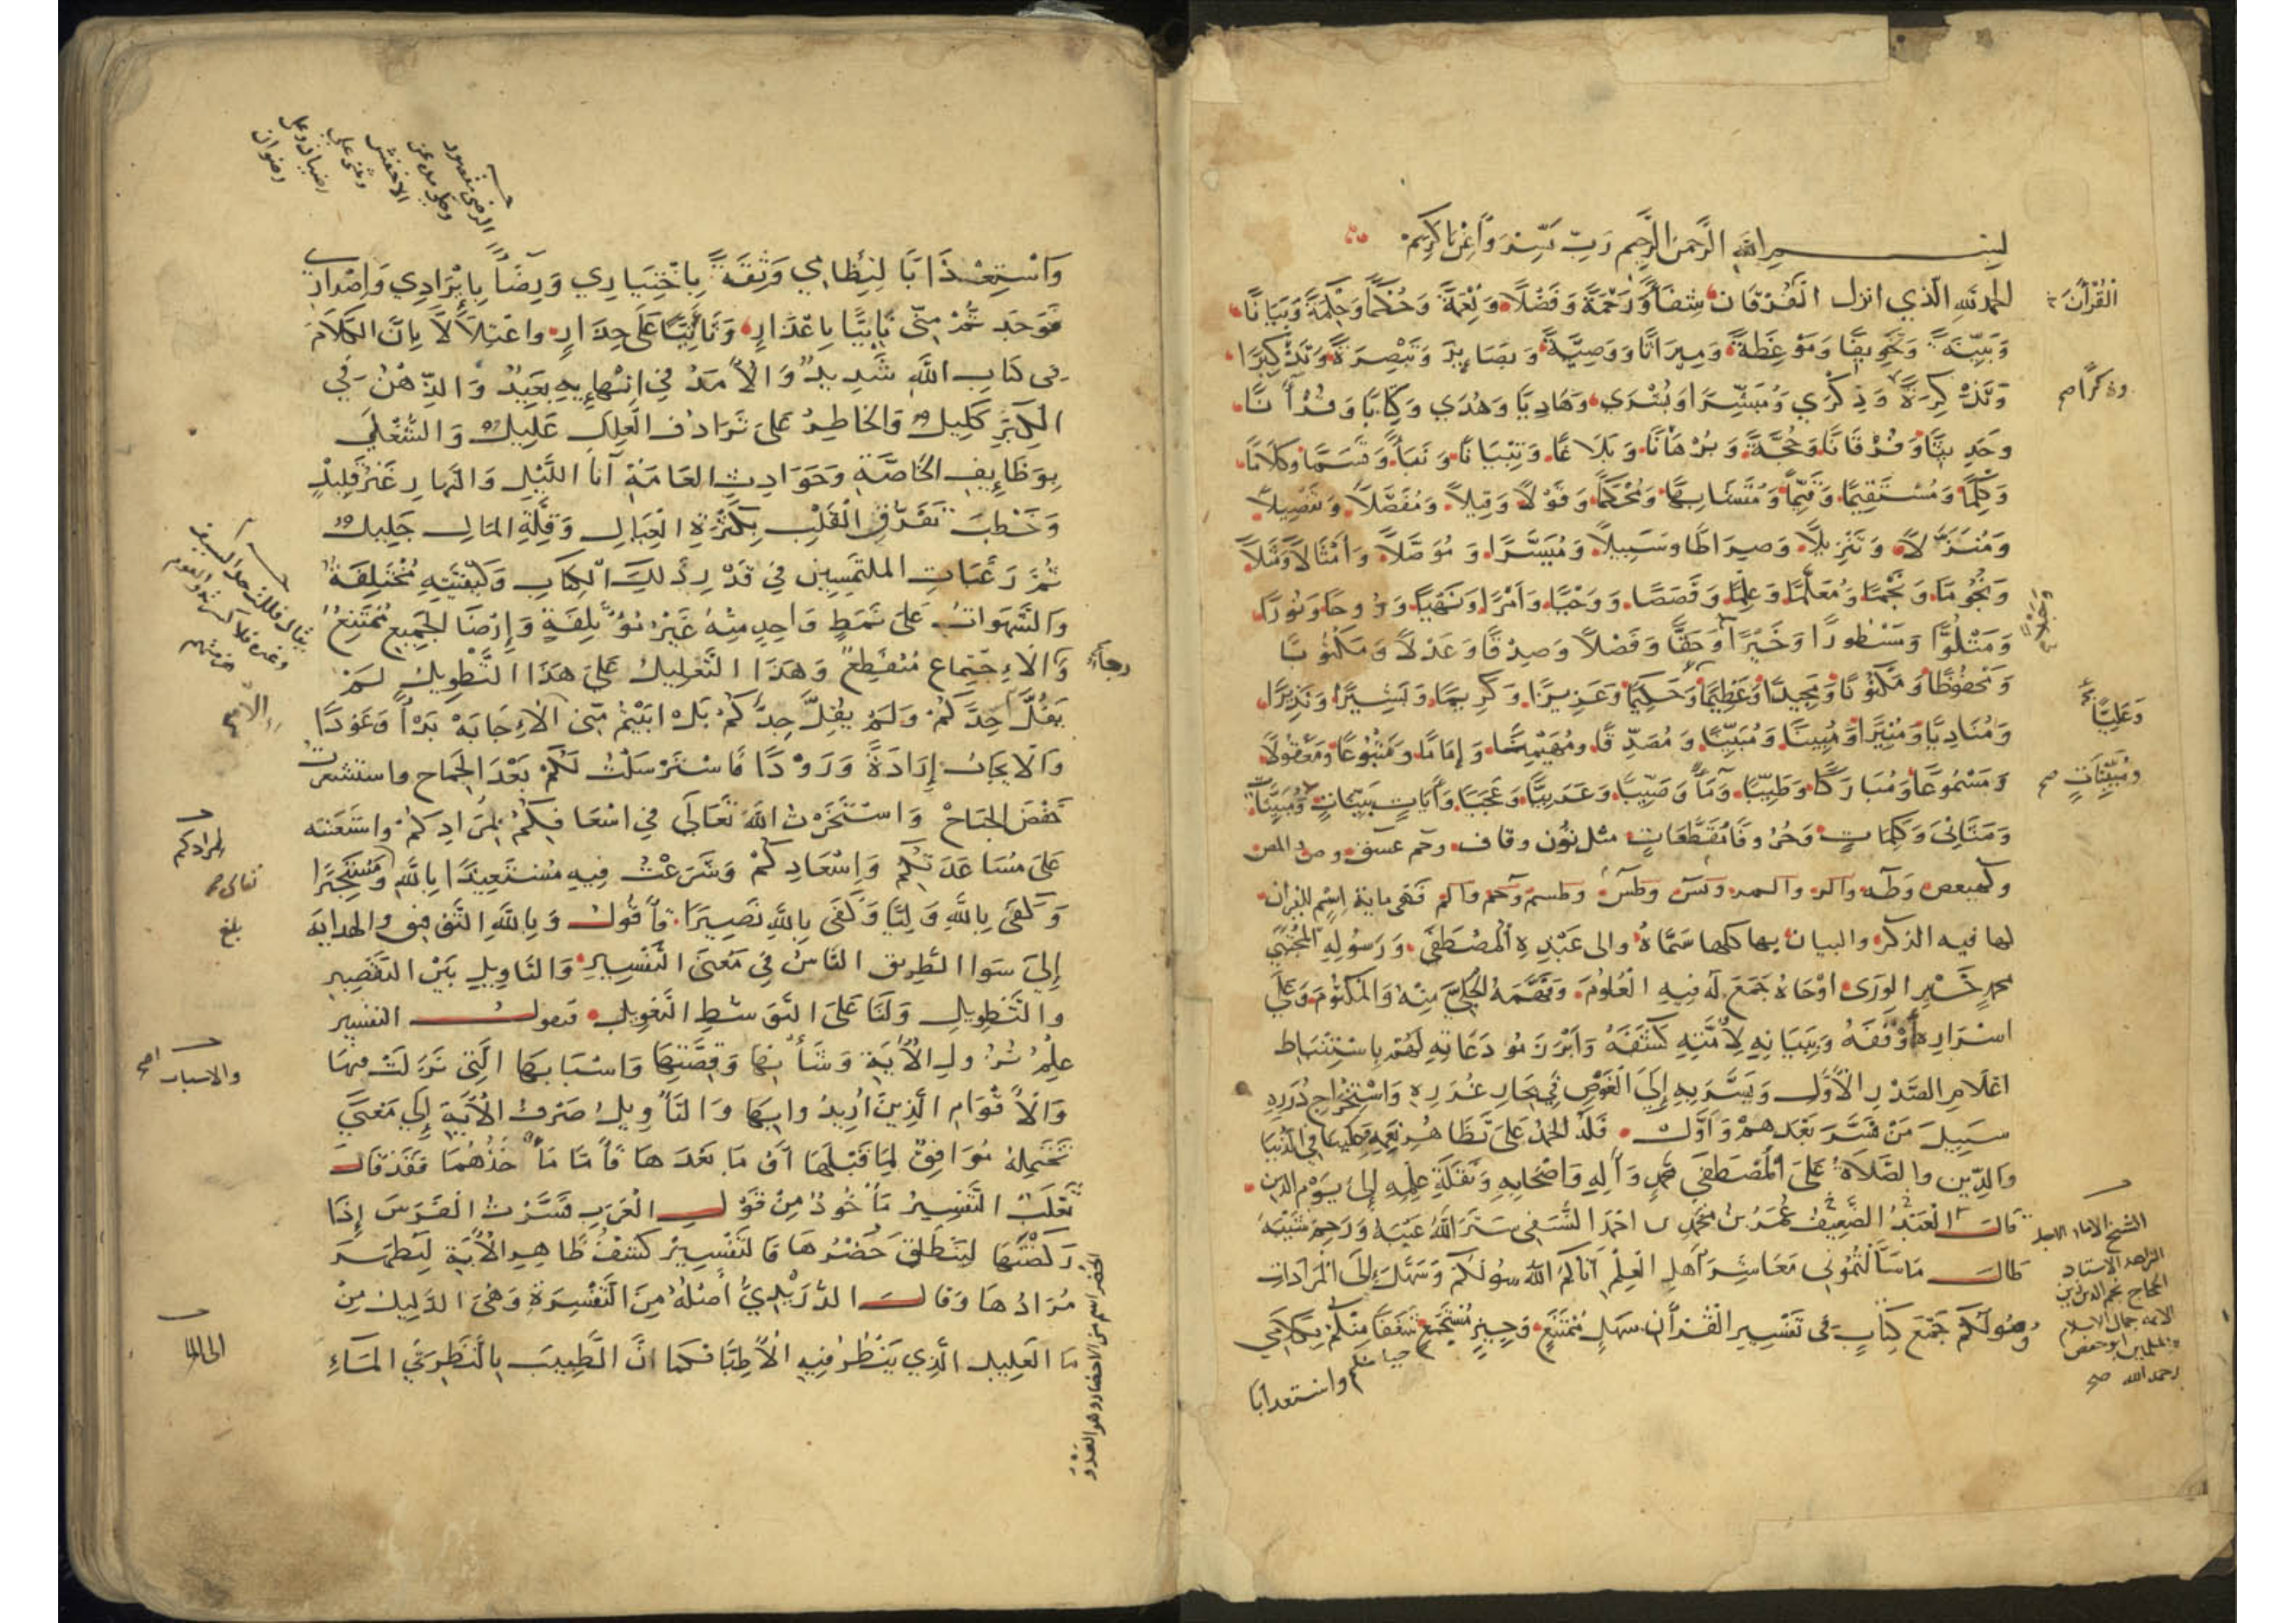 بسم الله الرحمن الرحيم رب يسر واعن يا كريم
الحمد لله الذي انزل الفرقان شِفَاءً وَرَحْمَةً وَفَضْلًا وَنِعْمَةً وَحُكْمًا وَحِكْمَةً وَبَيَانًا
القُرْآنَ
وَبَيِّنَةً وَتَخْوِيفًا وَمَوْعِظَةً وَمِيرَاثًا وَوَصِيَّةً وَبَصَايِرَ وَتَبْصِرَةً وَتَذْكِيرًا
وَتَذْكِرَةً وَذِكْرَى وَمُبَشِّرًا وَبُشْرَى وَهَادِيًا وَهُدًى وَكِتَابًا وَقُرْآنًا
وذكرًا صح
وَحَدِيثًا وَفُرْقَانًا وَحُجَّةً وَبُرْهَانًا وَبَلَاغًا وَتِبْيَانًا وَنَبَأً وَقَسَمًا وَكَلَامًا
وَكَلِمًا وَمُسْتَقِيمًا وَقَيِّمًا وَمُتَشَابِهًا وَمُحْكَمًا وَقَوْلًا وَقِيلًا وَمُفَصَّلًا وَتَفْصِيلًا
وَمُنَزَّلًا وَتَنْزِيلًا وَصِرَاطًا وَسَبِيلًا وَمُيَسَّرًا وَمُوَصَّلًا وَأَمْثَالًا وَمَثَلًا
وَنُجُومًا وَنَجْمًا وَمُعَلَّمًا وَعِلْمًا وَقَصَصًا وَوَحْيًا وَأَمْرًا وَنَهْيًا وَرُوحًا وَنُورًا
وَمَتْلُوًّا وَمَسْطُورًا وَخَيْرًا وَحَقًّا وَفَضْلًا وَصِدْقًا وَعَدْلًا وَمَكْتُوبًا
وَمَحْفُوظًا وَمَكْنُونًا وَمَجِيدًا وَعَظِيمًا وَحَكِيمًا وَعَزِيزًا وَكَرِيمًا وَبَشِيرًا وَنَذِيرًا
وَعَلِيًّا
وَمُنَادِيًا وَمُنِيرًا وَمُبِينًا وَمُبَيِّنًا وَمُصَدِّقًا وَمُهَيْمِنًا وَإِمَامًا وَمَتْبُوعًا وَمَعْقُولًا
وَمَسْمُوعًا وَمُبَارَكًا وَطَيِّبًا وَمَاءً وَصَيِّبًا وَعَرَبِيًّا وَعَجَبًا وَآيَاتٍ بَيِّنَاتٍ وَمُبَيِّنًا
ومُبَيِّنَاتٍ صح
وَمَثَانِيَ وَكَلِمَاتٍ وَحُرُوفًا مُقَطَّعَاتٍ مثل نون وقاف وحم عسق وص والمص
وكهيعص وطه والر والمر ويس وطس وطسم وحم والم فهى ماية اسم للقران
لها فيه الذكر والبيان بها كلها سَمَّاهُ والى عَبْدِهِ المُصْطَفَى وَرَسُولِهِ المُجْتَبَى
محمدٍ خَيْرِ الوَرَى اوْحَاهُ جَمَعَ لَهُ فِيهِ الْعُلُومَ وَفَهَّمَهُ الْجَلِيَّ مِنْهُ وَالمَكْتُومَ وَعَلَى
اسْرَارِهِ أَوْقَفَهُ وَبِبَيَانِهِ لِأُمَّتِهِ كَشَفَهُ وَابْرَزَ نُورَ دَعَاتِهِ لَهُمْ بِاسْتِنْبَاطِ
اعْلَامِ الصَّدْرِ الْأَوَّلِ وَيَسَّرَ بِهِ إِلَى الْغَوْصِ فِي بِحَارِ غُدَرِهِ وَاسْتِخْرَاجِ دُرَرِهِ
سَبِيلَ مَنْ فَسَّرَ بَعْدَهُمْ وَأَوَّلَ فَلَهُ الْحَمْدُ عَلَى تَظَاهُرِ نِعَمِهِ عَلَيْنَا فِي الدُّنْيَا
وَالدِّينِ وَالصَّلَاةُ عَلَى الْمُصْطَفَى مُحَمَّدٍ وَآلِهِ وَاصْحَابِهِ وَنَقَلَةِ عِلْمِهِ إِلَى يَوْمِ الدين
قَالَ الْعَبْدُ الضَّعِيفُ عُمَرُ بْنُ مُحَمَّدِ بن احْمَدَ النَّسَفِي سَتَرَ اللهُ عَيْبَهُ وَرَحِمَ شَيْبَهُ
الشيخ الامام الاجل
الزاهد الاستاد
الحجاج نجم الدين زين
الائمه جمال الاسلام
ابو حفص
رحمه الله صح
طَالَ مَا سَأَلْتُمُونِي مَعَاشِرَ أَهْلِ الْعِلْمِ آتَاكُمُ اللهُ سُؤْلَكُمْ وَسَهَّلَ إِلَى الْمُرَادَاتِ
وُصُولَكُمْ جَمْعَ كِتَابٍ فِي تَفْسِيرِ الْقُرْآنِ سَهْلٍ مُمْتَنِعٍ وَجِيزٍ مُسْتَجْمِعٍ شَغَفًا مِنْكُمْ بِكَلَامِي
واستعذابا
وَاسْتِعْذَابًا لِنِظَامِي وَثِقَةً بِاخْتِيَارِي وَرِضًا بِإِيْرَادِي وَإِصْدَارِي
فَوَجَدْتُمْ مِنِّي تَأَبِّيًا بِاعْتِذَارٍ وَتَأَنِّيًا عَلَى حِذَارٍ وَاعْتِلَالًا بِانَّ الْكَلَامَ
فِي كِتَابِ اللهِ شَدِيدٌ وَالْأَمَدُ فِي انْتِهَائِهِ بَعِيدٌ وَالذِّهْنُ فِي
الْكِبَرِ كَلِيلٌ وَالْخَاطِرُ عَلَى تَرَادُفِ الْعِلَلِ عَلِيلٌ وَالشُّغْلُ
بِوَظَايِفِ الْخَاصَّةِ وَحَوَادِثِ الْعَامَّةِ آنَاءَ اللَّيْلِ وَالنَّهَارِ غَيْرُ قَلِيلٍ
وَخَطْبُ تَفَرُّقِ الْقَلْبِ بِكَثْرَةِ الْعِيَالِ وَقِلَّةِ الْمَالِ جَلِيلٌ
ثُمَّ رَغَبَاتِ الْمُلْتَمِسِينَ فِي قَدْرِ ذَلِكَ الْكِتَابِ وَكَيْفِيَّتِهِ مُخْتَلِفَةٌ
وَالشَّهَوَاتُ عَلَى نَمَطٍ وَاحِدٍ مِنْهُ غَيْرُ مُؤْتَلِفَةٍ وَإِرْضَاءُ الْجَمِيعِ مُمْتَنِعٌ
وَالْاِجْتِمَاعُ مُنْقَطِعٌ وَهَذَا التَّعْلِيلُ عَلَى هَذَا التَّطْوِيلِ لَمْ
يَفُلَّ حَدَّكُمْ وَلَمْ يُقِلَّ جِدَّكُمْ بَلْ ابَيْتُمْ مِنِّي الْاِجَابَةَ بَدْأً وَعَوْدًا
وَالْإِيجَابَ إِرَادَةً وَرَوْدًا فَاسْتَرْسَلْتُ لَكُمْ بَعْدَ الْجِمَاحِ واستشعرت
خَفْضَ الْجَنَاحِ وَاسْتَخَرْتُ اللهَ تَعَالَى فِي اسْعَافِكُمْ بِمُرَادِكُمْ واستعنته
لمرادكم
عَلَى مُسَاعَدَتِكُمْ وَإِسْعَادِكُمْ وَشَرَعْتُ فِيهِ مُسْتَعِيذًا بِاللهِ وَمُسْتَجِيرًا
تعالى صح
وَكَفَى بِاللهِ وَلِيًّا وَكَفَى بِاللهِ نَصِيرًا فَأَقُولُ وَبِاللهِ التَّوْفِيقُ والهداية
بلغ
إِلَى سَوَاءِ الطَّرِيقِ النَّاسُ فِي مَعْنَى التَّفْسِيرِ وَالتَّأْوِيلِ بَيْنَ التَّقْصِيرِ
وَالتَّطْوِيلِ وَلَنَا عَلَى التَّوَسُّطِ التَّعْوِيلُ فنقول التفسير
عِلْمُ نُزُولِ الْآيَةِ وَشَأْنِهَا وَقِصَّتِهَا وَاسْبَابِهَا الَّتِي نَزَلَتْ فِيهَا
والاسباب صح
وَالْأَقْوَامِ الَّذِينَ أُرِيدُوا بِهَا وَالتَّأْوِيلُ صَرْفُ الْآيَةِ إِلَى مَعْنًى
تَحْتَمِلُهُ مُوَافِقٌ لِمَا قَبْلَهَا أَوْ مَا بَعْدَهَا فَأَمَّا مَأْخَذُهُمَا فَقَدْ قَالَ
ثَعْلَبٌ التَّفْسِيرُ مَأْخُوذٌ مِنْ قَوْلِ الْعَرَبِ فَسَّرْتُ الْفَرَسَ إِذَا
رَكَضْتَهَا لِيَنْطَلِقَ حُضْرُهَا فَالتَّفْسِيرُ كَشْفُ ظَاهِرِ الْآيَةِ لِيَظْهَرَ
الحضر اسم من الاحضار وهو العَدْوُ
مُرَادُهَا وَقَالَ الدُّرَيْدِيُّ أَصْلُهُ مِنَ التَّفْسِرَةِ وَهِيَ الدَّلِيلُ مِنْ
مَاءِ الْعَلِيلِ الَّذِي يَنْظُرُ فِيهِ الْأَطِبَّاءُ فَكَمَا انَّ الطَّبِيبَ بِالنَّظَرِ فِي الْمَاءِ